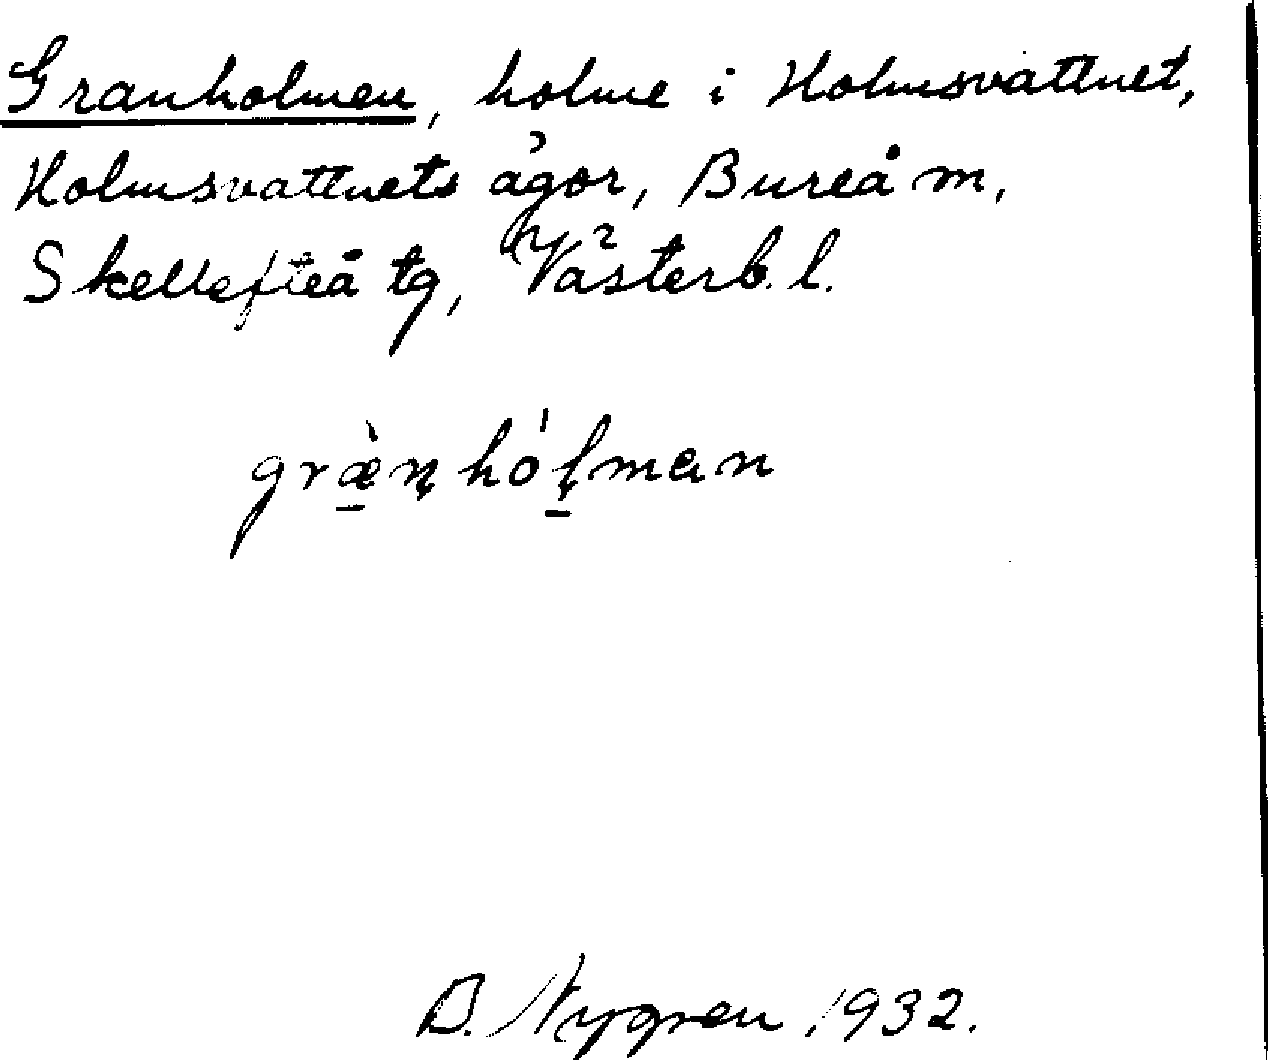 Granholmen, holme i Holmsvattnet,
Holmsvattnets ägor, Bureå m,
Skellefteå tg, Västerb. l.
græ̀n̨hó̀l̨man
B. Nygren 1932.